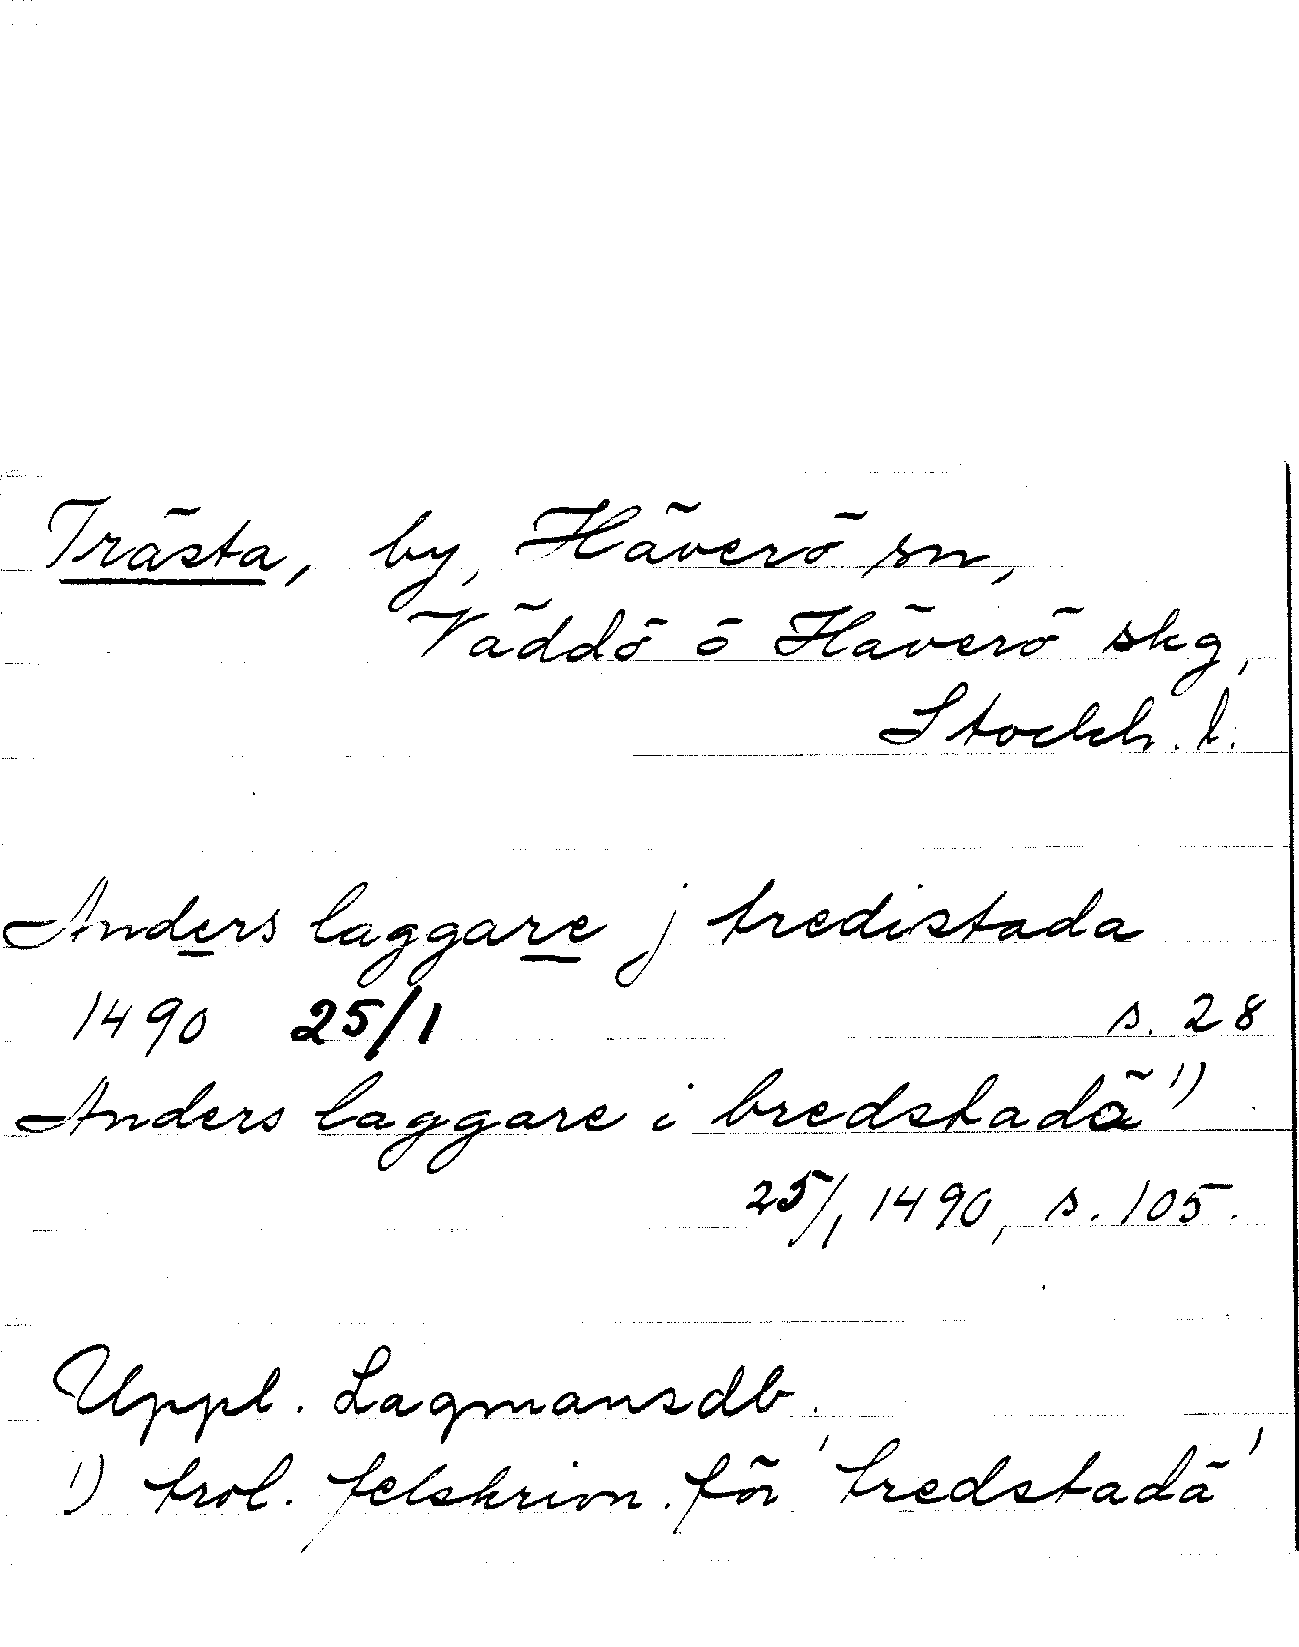 Trästa, by, Häverö sn,
Väddö o Häverö skg,
Stockh. l.
Anders laggare j tredistada
1490 25/1 s. 28
Anders laggare i bredstadä 1)
25/1 1490, s. 105.
Uppl. Lagmansdb.
1) trol. felskrivn. för 'tredstadä'